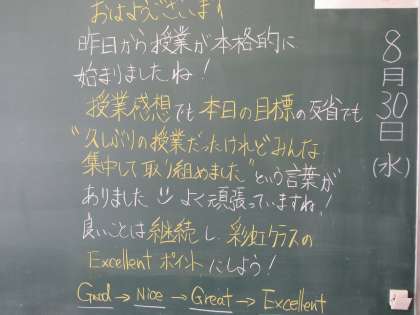 おはようございます
昨日から授業が本格的に
始まりましたね！
授業感想でも本日の目標の反省でも
"久しぶりの授業だったけれどみんな
集中して取り組めました"という言葉が
ありました よく頑張っていますね！
良いことは継続し、彩虹クラスの
Excellent ポイントにしよう！
Good → Nice → Great → Excellent
8月30日(水)